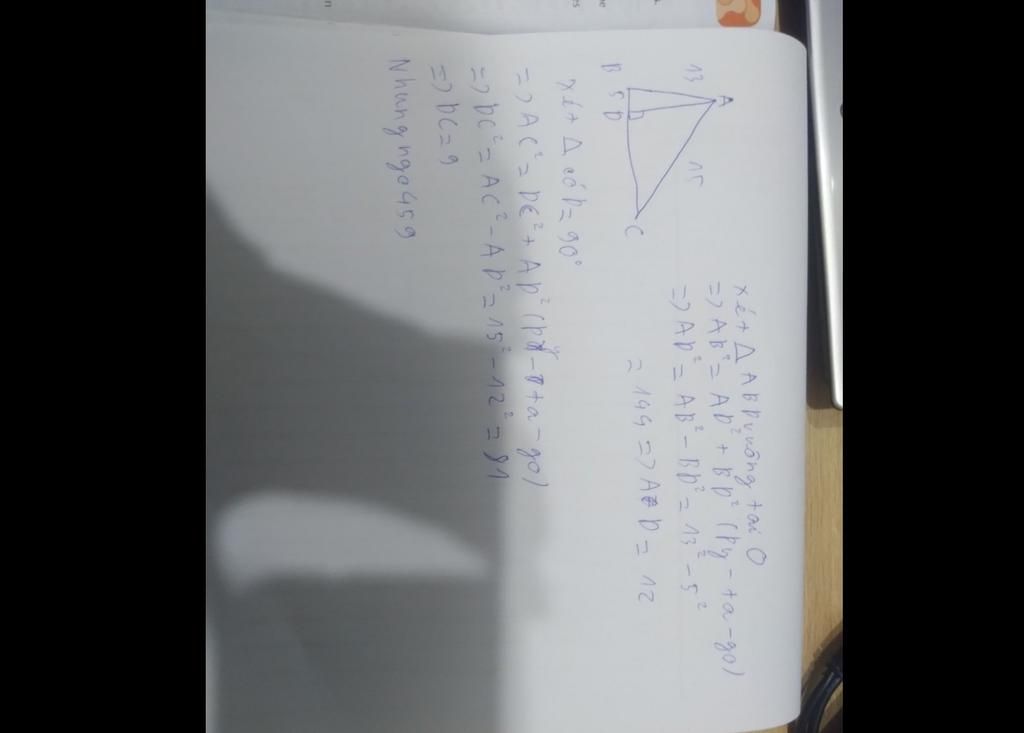 A
13
15
B 5 D
C
xét Δ ABD vuông tại O
=> AB² = AD² + BD² (py-ta-go)
=> AD² = AB² - BD² = 13² - 5²
= 144 => AD = 12
xét Δ có D = 90°
=> AC² = DC² + AD² (py-ta-go)
=> DC² = AC² - AD² = 15² - 12² = 81
=> DC = 9
Nhungngo459